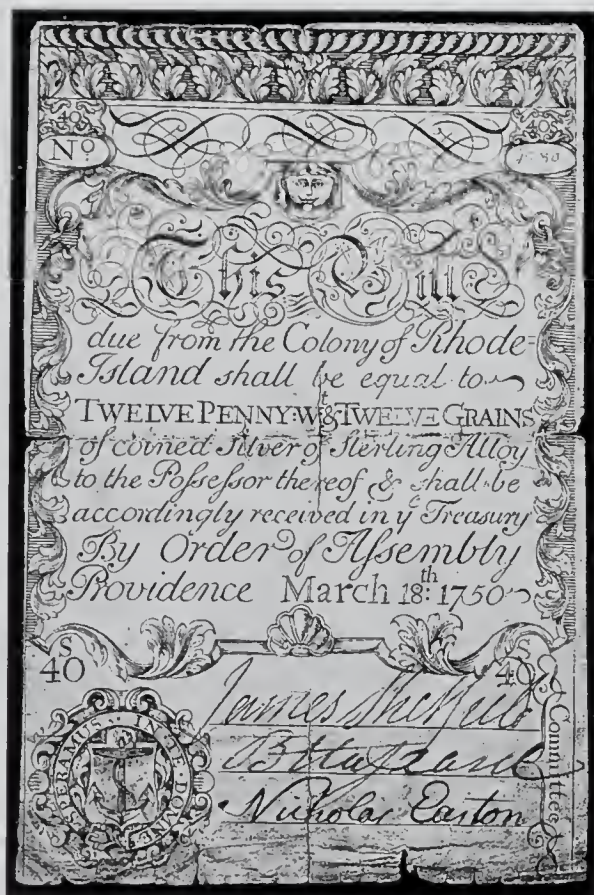 40 40
No.
This Bill
due from the Colony of Rhode=
Island shall be equal to
TWELVE PENNY:Wt & TWELVE GRAINS
of coined Silver of Sterling Alloy
to the Possessor thereof & shall be
accordingly received in ye Treasury
By Order of Assembly
Providence March 18:th 1750
S
40
S
40
James Sheffield
Nicholas Easton
Committee
IN TE DOMINE SPERAMUS